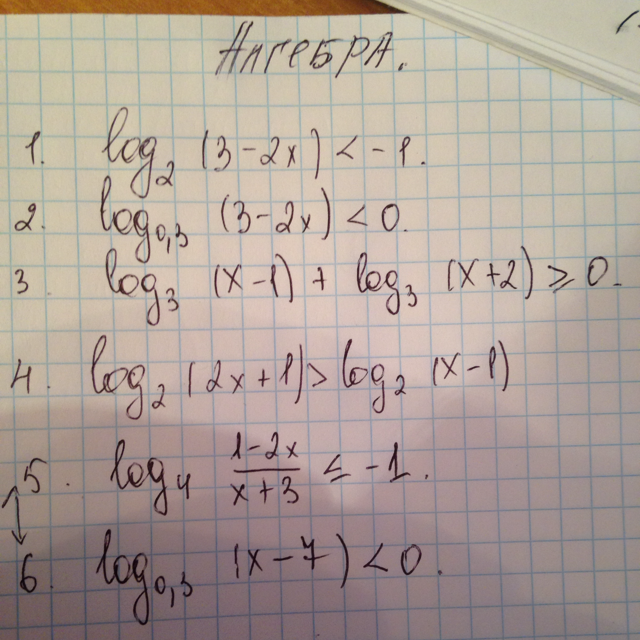 Алгебра.
1. log₂ (3-2x) < -1.
2. log₀,₃ (3-2x) < 0.
3. log₃ (x-1) + log₃ (x+2) ≥ 0.
4. log₂ (2x+1) > log₂ (x-1)
5. log₄ (1-2x)/(x+3) ≤ -1.
6. log₀,₃ (x-7) < 0.